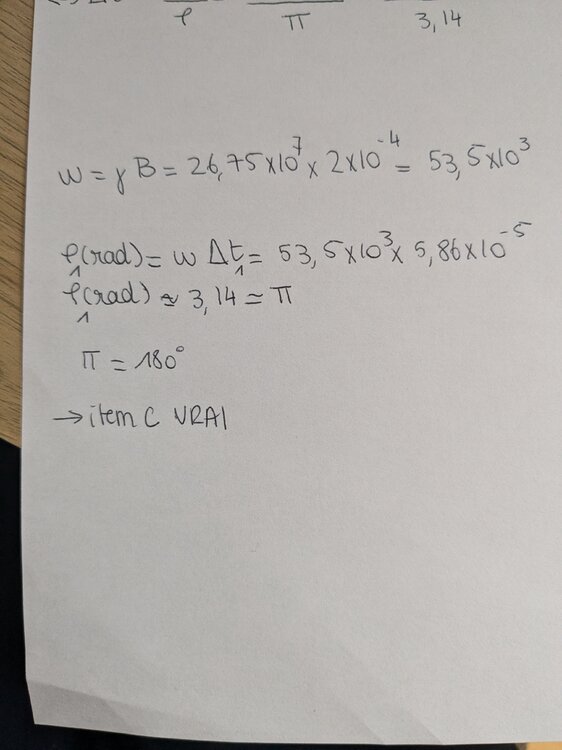 φ π 3,14
w = γ B = 26,75x10⁷ x 2x10⁻⁴ = 53,5x10³
φ₁(rad) = w Δt₁ = 53,5x10³ x 5,86x10⁻⁵
φ₁(rad) ≃ 3,14 ≃ π
π = 180°
→ item C VRAI